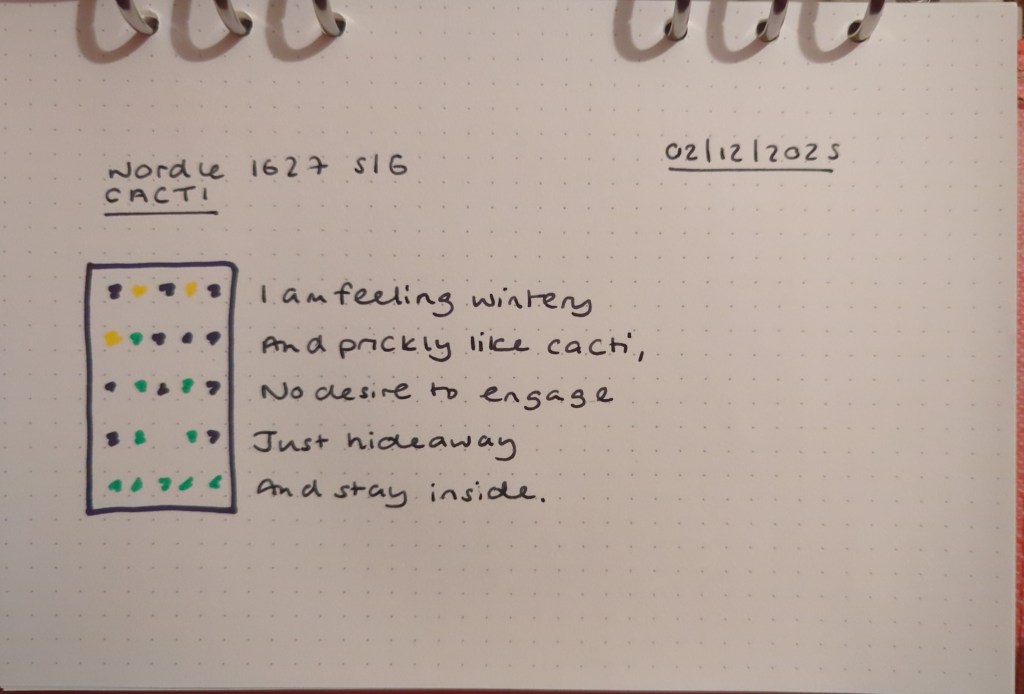 Wordle 1627 5/6
CACTI
02/12/2025
I am feeling wintery
And prickly like cacti,
No desire to engage
Just hideaway
And stay inside.